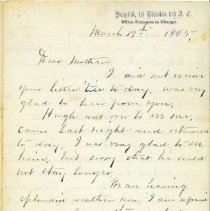 Hospital, 1st Division 6th A. C.
Office Surgeon in Charge.
March 19th 1865.
Dear Mother
I did not receive
your letter to day, was very
glad to hear from you.
Hugh was over to see me,
came last night and returned
to day, I was very glad to see
him, but sorry that he could
not stay longer.
We are having
splendid weather now, I am afraid